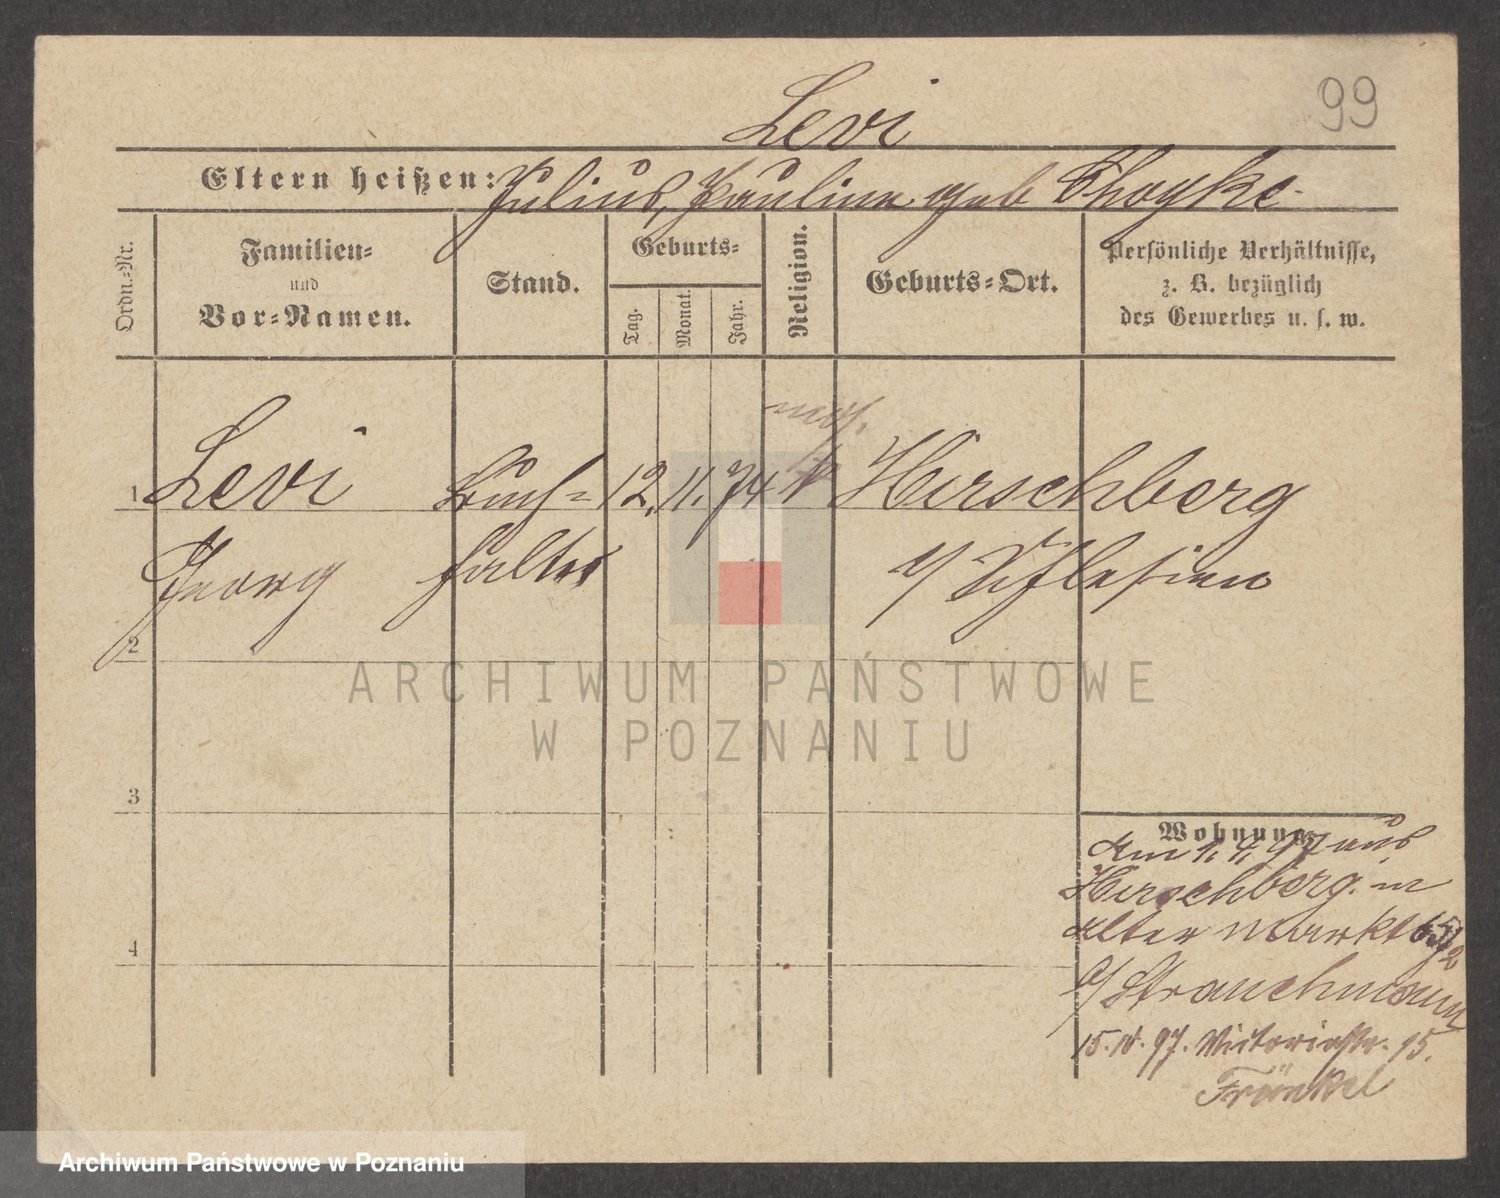 99
Levi
Eltern heißen: Julius, Pauline geb Choyke
Ordn.-Nr.
Familien- und Vor-Namen.
Stand.
Geburts-
Tag.
Monat.
Jahr.
Religion.
Geburts-Ort.
Persönliche Verhältnisse,
z. B. bezüglich
des Gewerbes u. s. w.
mos.
1 Levi Buch- 12. 11. 74 Hirschberg
Georg halter i/ Schlesien
2
3
4
Wohnung
am 1. 4. 97 aus
Hirschberg. in
Alter Markt 65/2
b/ Strauchmann
15. IV. 97. Victoriastr. 15.
Fränkel
ARCHIWUM PAŃSTWOWE
W POZNANIU
Archiwum Państwowe w Poznaniu